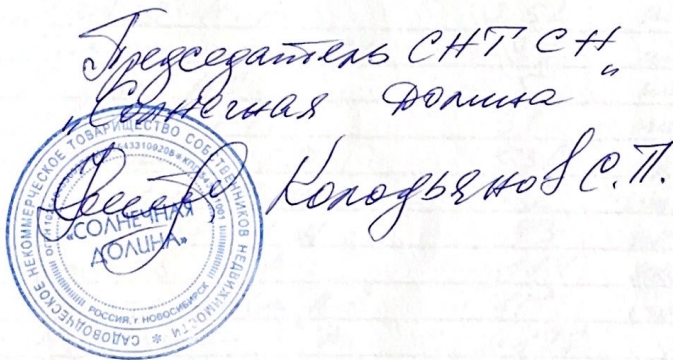 Председатель СНТ СН
„Солнечная Долина"
Колодьянов С.П.
САДОВОДЧЕСКОЕ НЕКОММЕРЧЕСКОЕ ТОВАРИЩЕСТВО СОБСТВЕННИКОВ НЕДВИЖИМОСТИ *
«СОЛНЕЧНАЯ
ДОЛИНА»
РОССИЯ, г. НОВОСИБИРСК